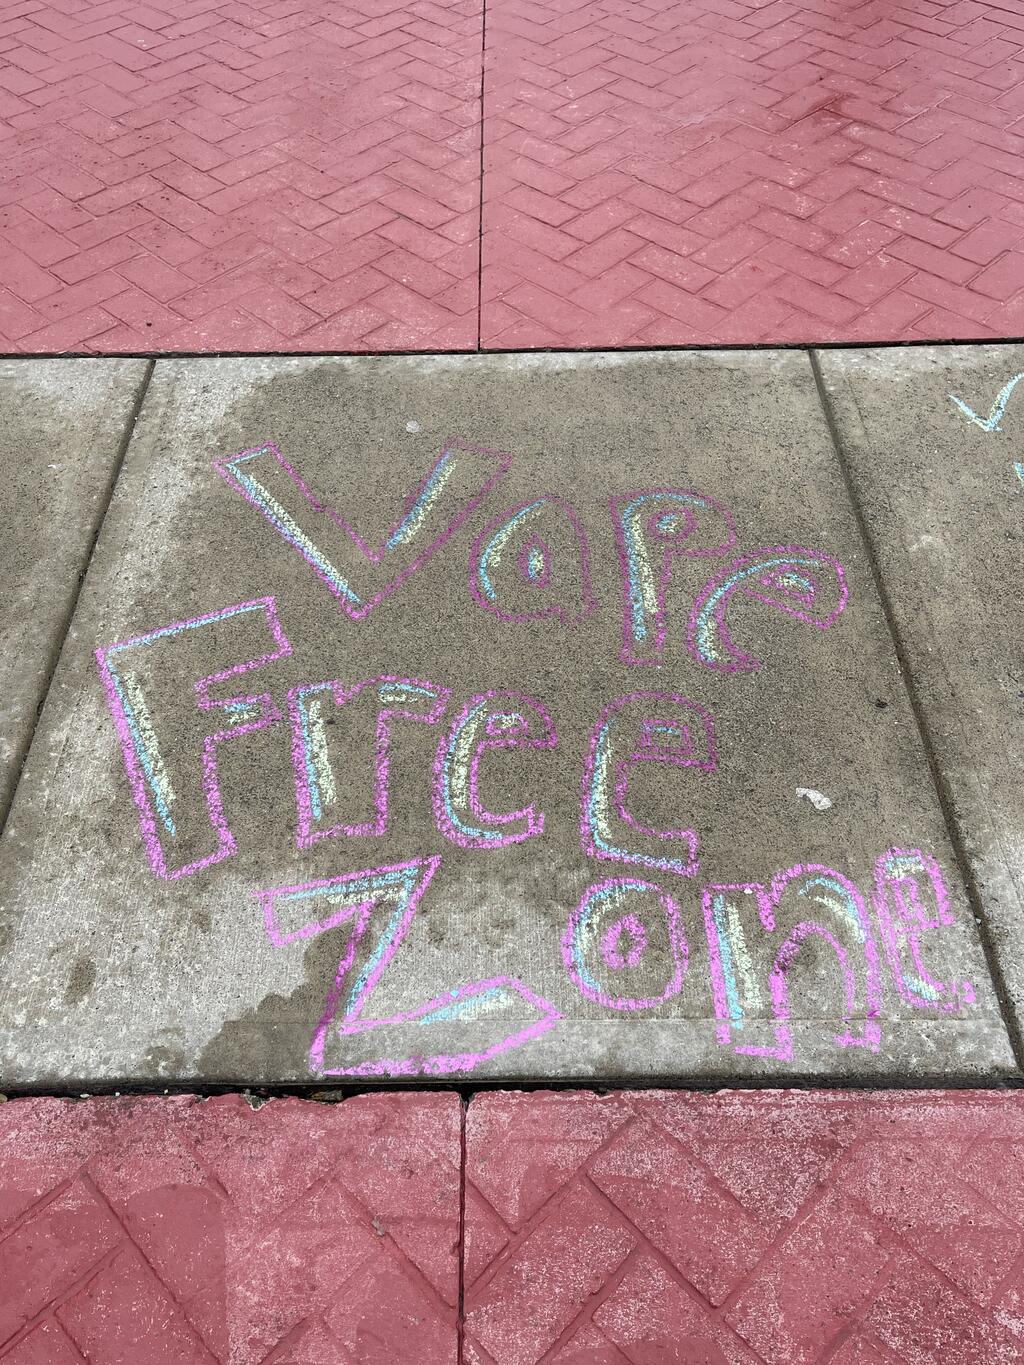 Vape
Free
Zone